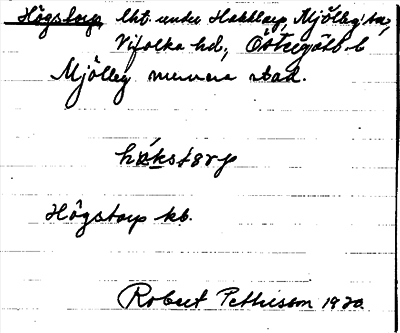 Högstorp lht. under Hakttorp, Mjölby sn,
Vifolka hd, Östergötl. l.
Mjölby numera stad.
hɷkstɷrp
Högstorp kb.
Robert Pettersson 1920